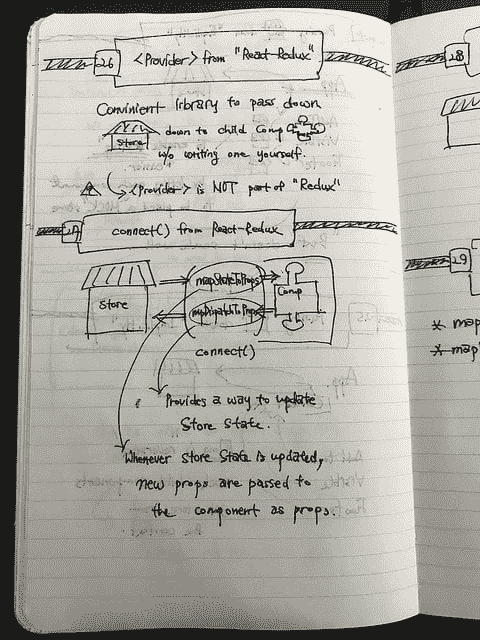 26
<Provider> from "React-Redux"
Convinient library to pass down
Store down to child Comp
w/o writing one yourself.
<Provider> is NOT part of "Redux"
27
connect() from React-Redux
Store
mapStateToProps
mapDispatchToProps
Comp
connect()
Provides a way to update
Store State.
Whenever Store State is updated,
new props are passed to
the component as props.
28
29
* map
* map